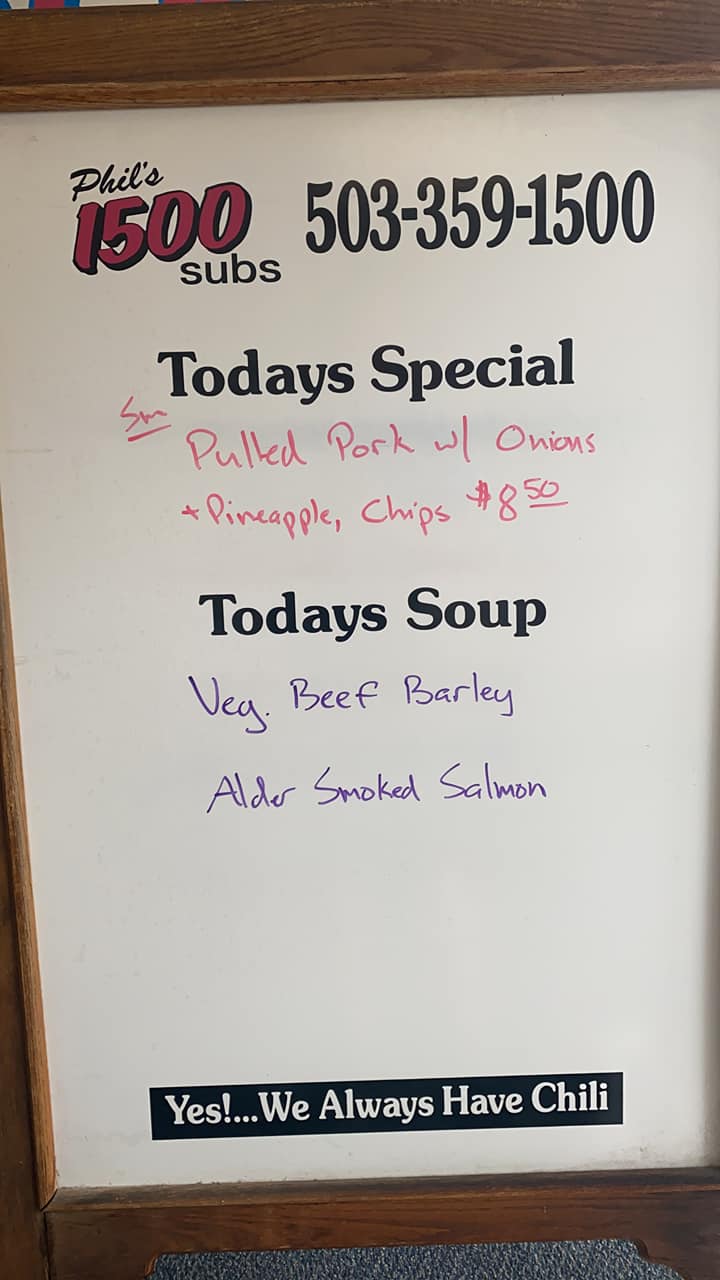 Phil's
1500
subs
503-359-1500
Todays Special
Sm
Pulled Pork w/ Onions
+ Pineapple, Chips $8 50
Todays Soup
Veg. Beef Barley
Alder Smoked Salmon
Yes!...We Always Have Chili